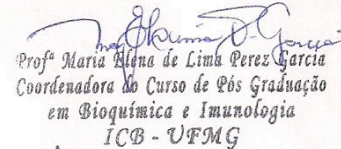 Profª Maria Elena de Lima Perez Garcia
Coordenadora do Curso de Pós Graduação
em Bioquímica e Imunologia
ICB - UFMG